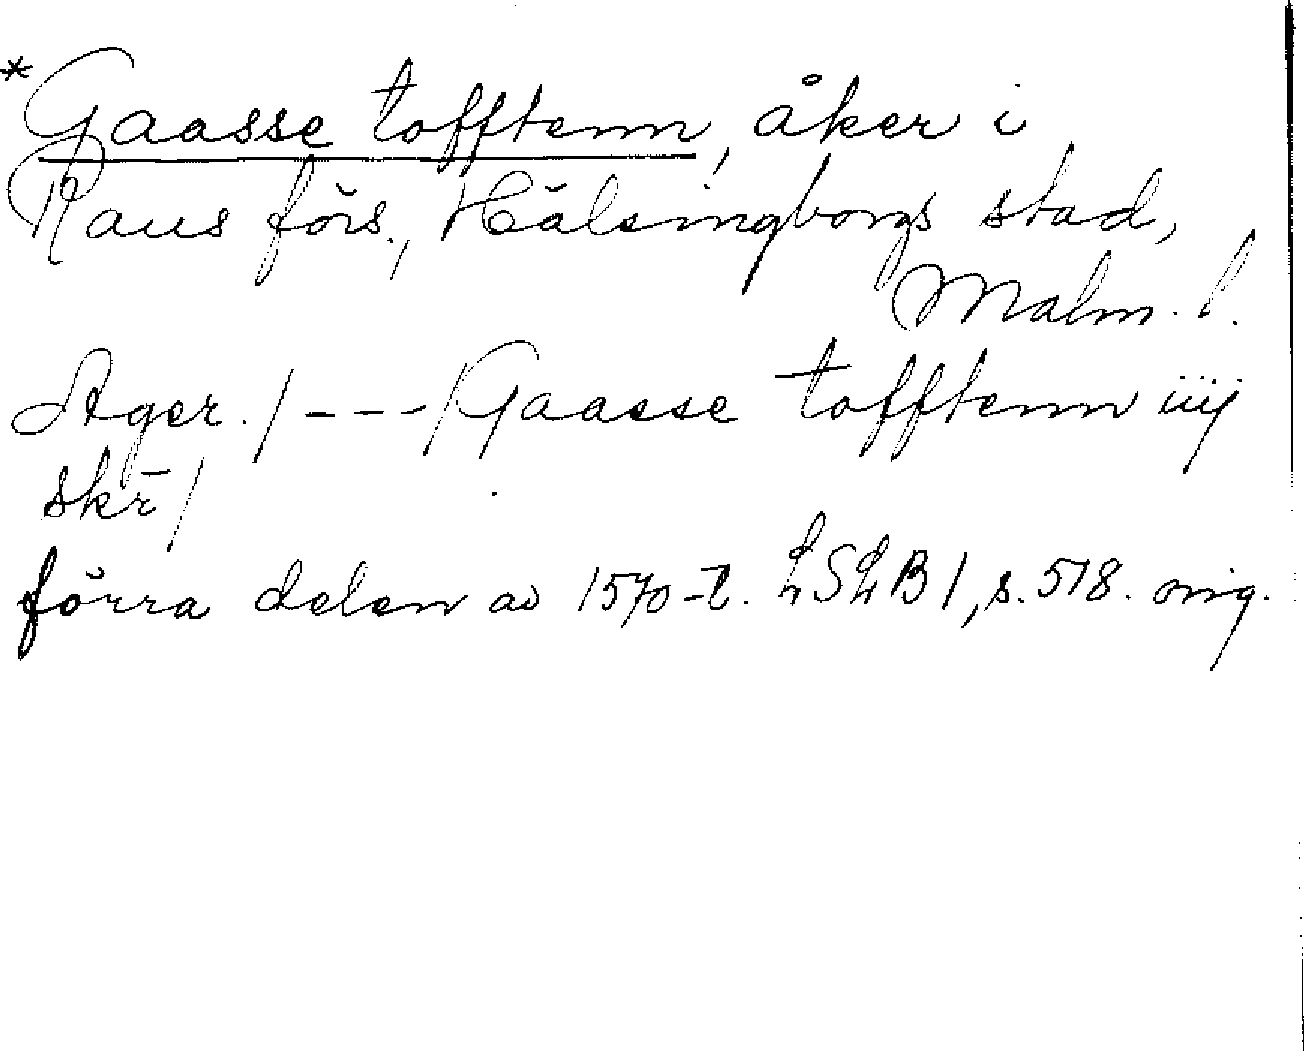 *Gaasse tofftenn, åker i
Raus förs., Hälsingborgs stad,
Malm. l.
Ager. / - - - / Gaasse tofftenn iiij
skr̄ /
förra delen av 1570-t. LSLB 1, s. 518. orig.